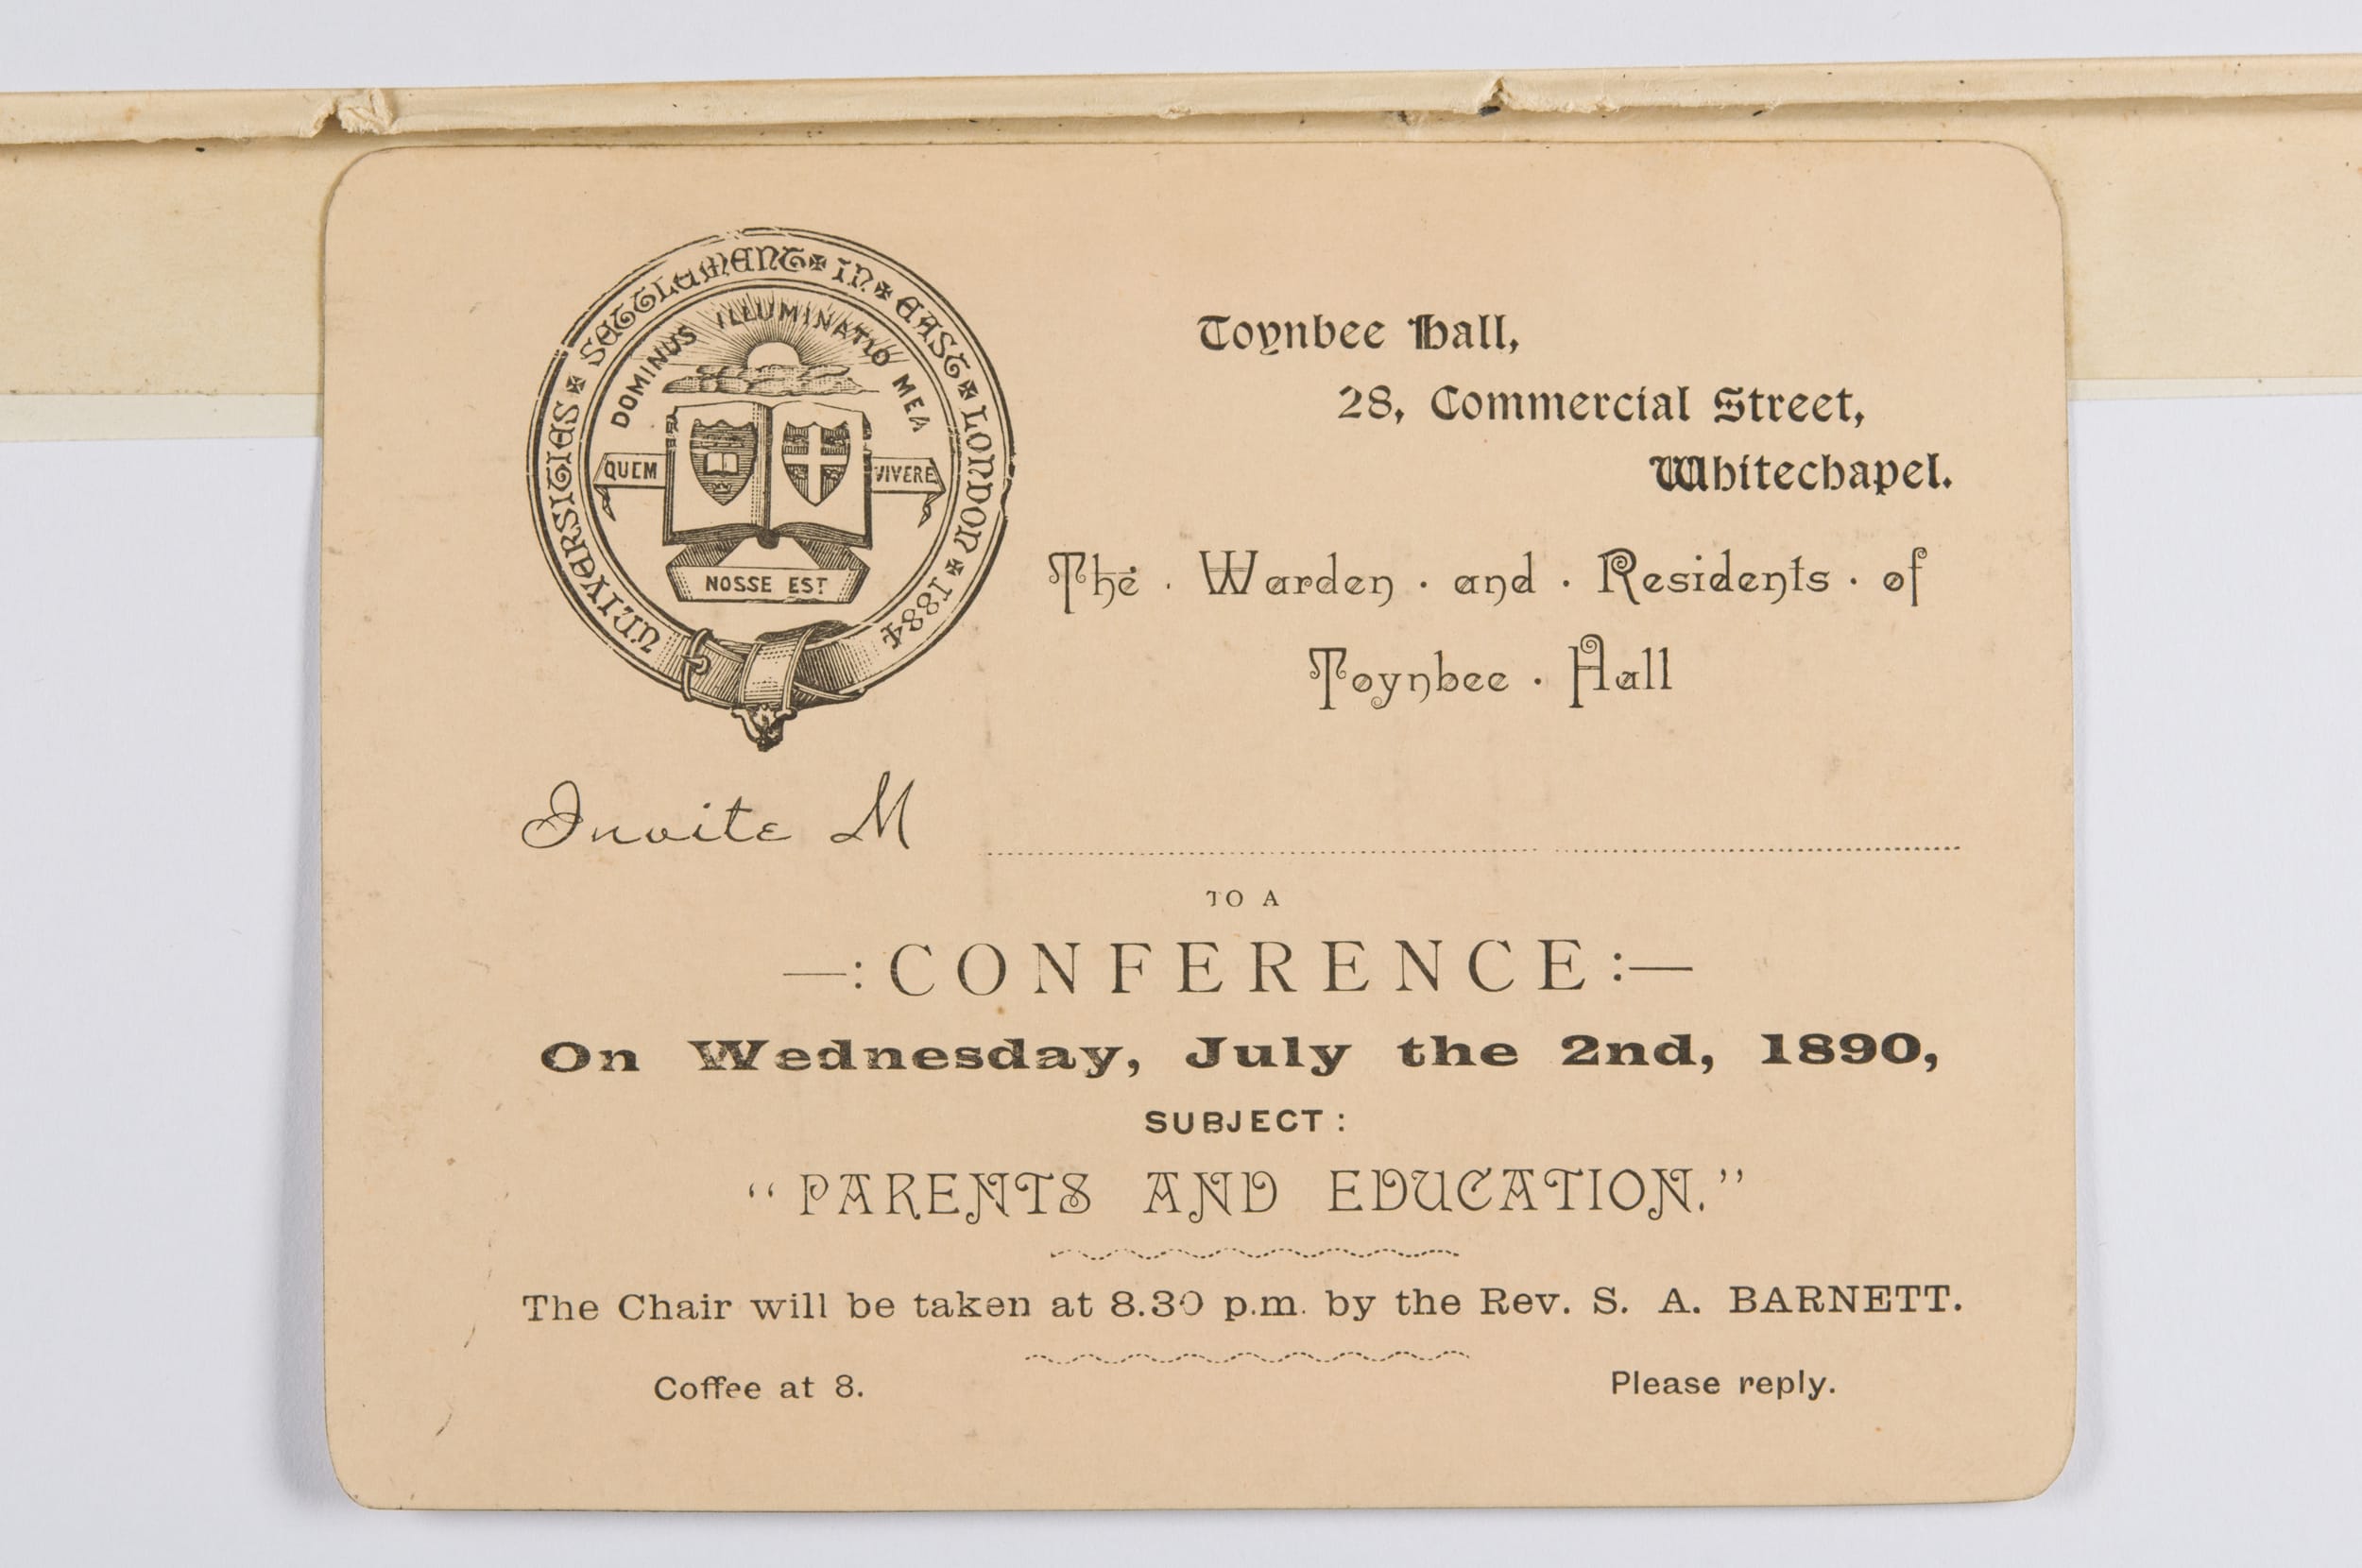 UNIVERSITIES ✠ SETTLEMENT ✠ IN ✠ EAST ✠ LONDON ✠ 1884
DOMINUS ILLUMINATIO MEA
QUEM VIVERE
NOSSE EST
Toynbee Hall,
28, Commercial Street,
Whitechapel.
The · Warden · and · Residents · of
Toynbee · Hall
Invite M
TO A
—: CONFERENCE :—
On Wednesday, July the 2nd, 1890,
SUBJECT :
“PARENTS AND EDUCATION.”
The Chair will be taken at 8.30 p.m. by the Rev. S. A. BARNETT.
Coffee at 8.
Please reply.